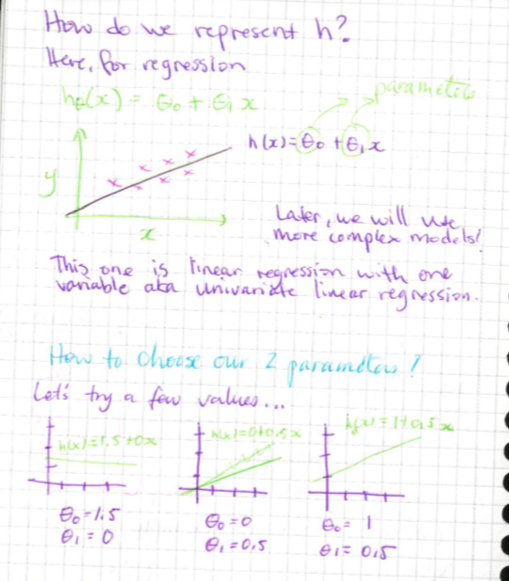 How do we represent h?
Here, for regression
hθ(x) = θ₀ + θ₁ x
parameters
h(x) = θ₀ + θ₁ x
y
x
Later, we will use
more complex models!
This one is linear regression with one
variable aka univariate linear regression.
How to choose our 2 parameters?
Let's try a few values...
h(x)=1.5+0x
h(x)=0+0.5x
h(x)=1+0.5x
θ₀=1.5
θ₁=0
θ₀=0
θ₁=0.5
θ₀=1
θ₁=0.5